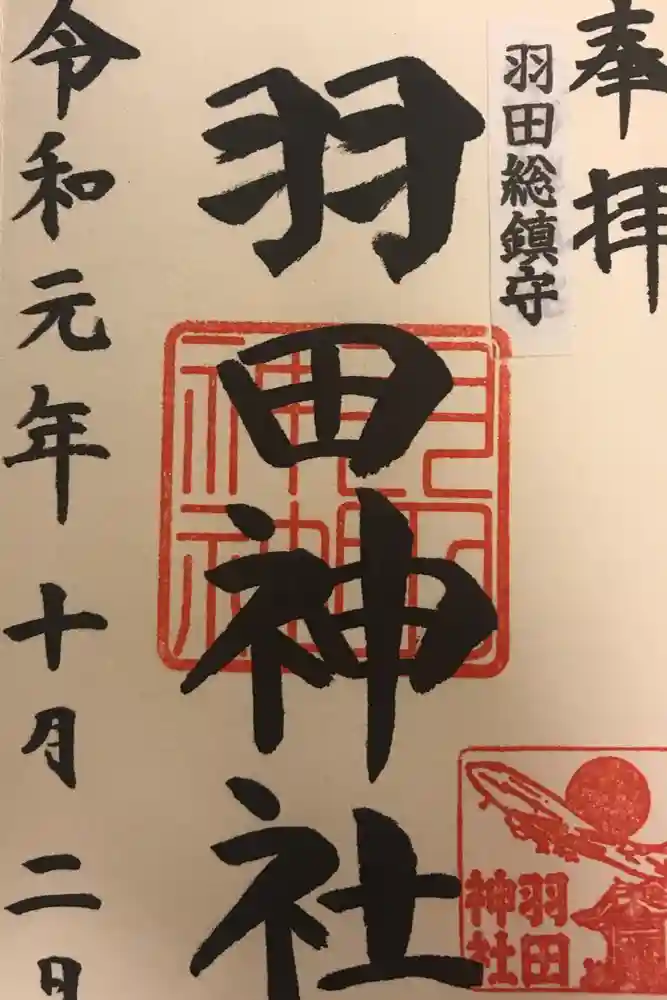 奉拝
羽田総鎮守
羽田神社
羽田神社
令和元年十月二日
羽田
神社